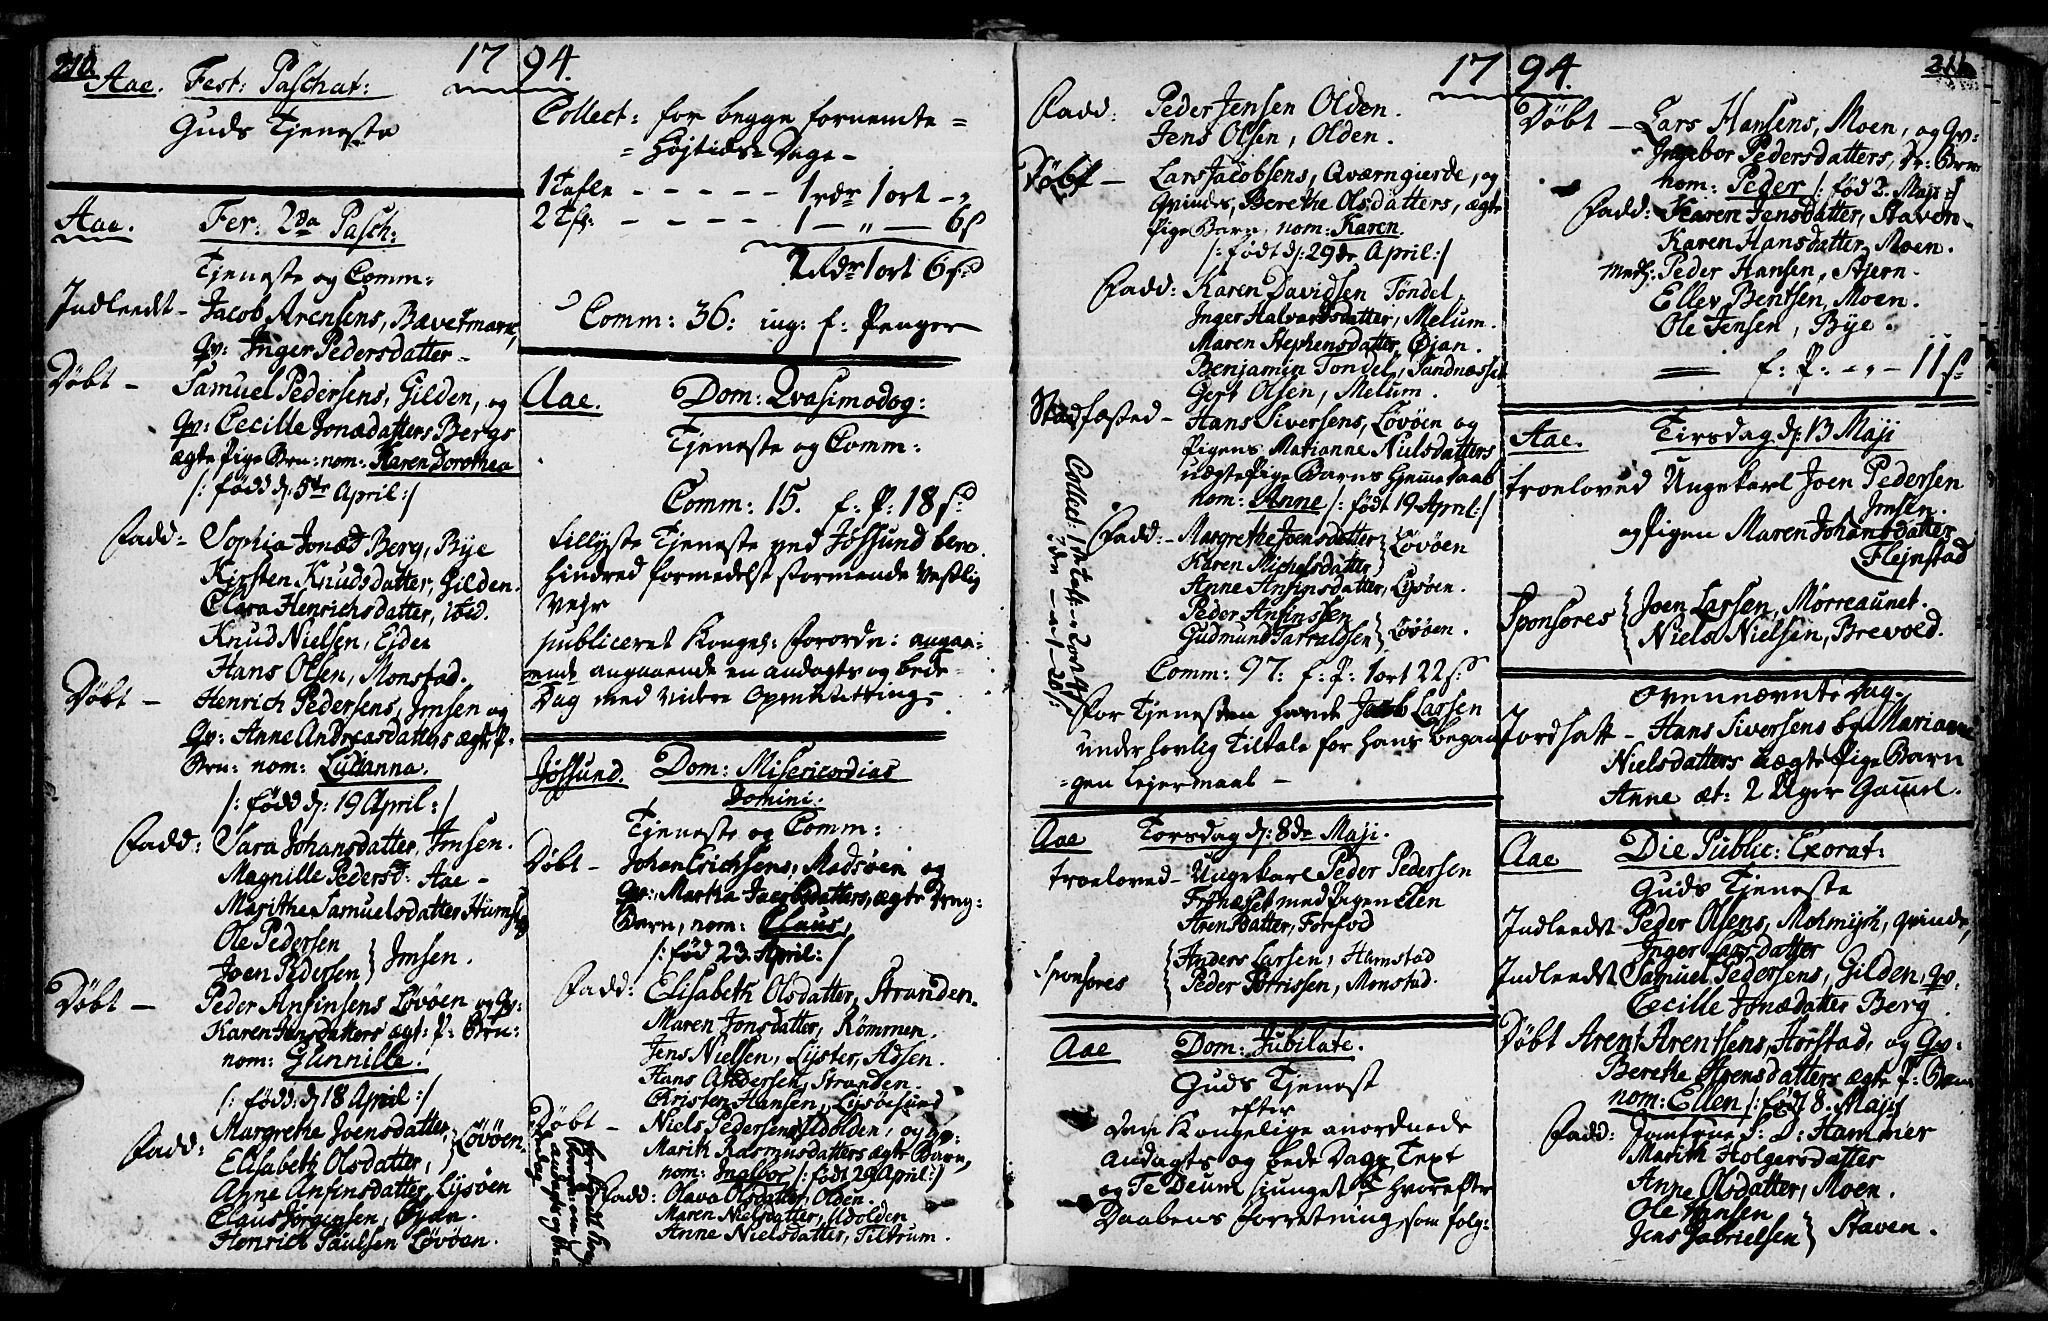 210.
17 94.
Aae. Fest: Paschat:
Guds Tjeneste
Aae. Fer: 2da Pasch:
Tjeneste og Comm:
Indleedt - Jacob Arensens, Bævermark,
Qv: Inger Pedersdatter -
Døbt - Samuel Pedersens, Gilden, og
Qv: Cecille Jonædatters Bergs
ægte Pige Brn: nom: Karen Dorothea
/: født d: 5te April :/
Fadd: Sophia Jonæd Berg, Bye
Kirsten Knudsdatter, Gilden.
Clara Henrichsdatter, ibid.
Knud Nielsen, Eiden
Hans Olsen, Monstad.
Døbt - Henrich Pedersens, Imsen og
Qv: Anne Andreasdatters ægte P:
Brn: nom: Lucianna.
/: født d: 19 April :/
Fadd: Sara Johansdatter, Imsen.
Magnille Pedersd: Aae -
Marithe Samuelsdatter
Ole Pedersen
Joen Pedersen } Imsen.
Døbt - Peder Anfinsens Løvøen og Qv:
Karen Jensdatters ægt: P: Brn:
nom: Gunnille.
/: født: d 18 April :/
Fadd: Margrethe Joensdatter,
Elisabeth Olsdatter, } Løvøen.
Anne Anfinsdatter, Lysøen
Claus Jørgensen, Øyan.
Henrich Paulsen Løvøen.
Collect: for begge fornemte =
= Højtids-Dage -
1 Tafle - - - - - 1 rdr 1 ort - "
2 Tfl: - - - - 1 - " - 6 s
2 rdr 1 ort 6 s
Comm: 36: ing: f: Penger
Aae. Dom: Qvasimodog:
Tjeneste og Comm:
Comm: 15. f: P: 18 s
Tillyste Tjeneste ved Jøssund blev
hindred formedelst stormende Vestlig
Vejr
publiceret Kongel: Forordn: angaa-
ende angaaende en andagts og bede-
Dag med videre Opmuntring -
Jøssund. Dom: Misericordias
Domini.
Tjeneste og Comm:
Døbt - Johan Erichsens, Madsøen og
Qv: Martha Jacobsdatters, ægte Dreng:
Barn, nom: Claus,
/: fød 23. April :/
Fadd: Elisabeth Olsdatter, Stranden.
Maren Jonsdatter, Rømmen.
Jens Nielsen, Lyster, Adsen.
Hans Andersen, Stranden.
Christen Hansen, Lysøesund
Døbt - Niels Pedersens, Udolden, og Qv:
Marith Rasmusdatters ægte Barn,
nom: Ingebor /: født 29 April :/
Fadd: Olava Olsdatter, Olden.
Maren Nielsdatter, Udolden
Anne Nielsdatter, Tiltrum.
17 94.
211.
Fadd: Peder Jensen Olden.
Jens Olsen, Olden.
Døbt - Lars Jacobsens, Qværngierde, og
Qvindes, Berethe Olsdatters, ægte
Pige Barn, nom: Karen.
/: født d: 29de April :/
Fadd: Karen Davidsen Tøndel,
Inger Halvardsdatter, Melum.
Maren Stephensdatter, Øjan.
Benjamin Tøndel, Sandnæsset
Gert Olsen, Melum.
Stadfæsted - Hans Siversens, Løvøen og
Pigens Marianne Nielsdatters
uægte Pige Barns Hjemmedaab
nom: Anne /: født 19 April :/
Fadd: - Margrethe Joensdatter
Karen Michelsdatter } Løvøen
Anne Anfinsdatter, Lysøen.
Peder Anfinssen
Gudmund Tarraldsen } Løvøen.
Comm: 97: f: P: 1 ort 22 s
For Tjenesten havde Jacob Larsen
under lovlig Tiltale for hans began-
-gen Lejermaal -
Aae Torsdag d: 8de Maji.
troeloved - Ungekarl Peder Pedersen
med Pigen Elen
Arensdatter, Forfod
Sponsores { Anders Larsen, Hamstad
Peder Sivrissen, Monstad.
Aae Dom: Jubilate.
Guds Tjenest
efter
Den Kongelige anordnede
Andagts og bede Dags Text
og Te Deum sjunget, hvorefter
Daabens Forretning, som følg:
Døbt - Lars Hansens, Moen, og Qv:
Ingebor Pedersdatters, Dr: Brn:
nom: Peder /: fød 2. Maji :/
Fadd: Karen Jensdatter, Staven -
Karen Hansdatter, Moen.
Peder Hansen, Stjern.
Ellev Bentsen, Moen.
Ole Jensen, Bye.
f: P: - " - 11 s
Aae. Tirsdag d: 13 Maji
troeloved Ungekarl Joen Pedersen
Imsen.
og Pigen Maren Johansdatter
Flejnstad
Sponsores { Joen Larsen, Mørreaunet.
Niels Nielsen, Brevold.
Ovennævnte Dag.
Jordsatt - Hans Siversens og Marianne
Nielsdatters uægte Pige Barn
Anne æt: 2 Uger Gammel.
Aae Die Public: Exorat:
Guds Tjeneste
Indleedt Peder Olsens, Molmyhr, Qvinde,
Inger Larsdatter
Indleedt Samuel Pedersens, Gilden, Qv:
Cecille Jonædatter Berg.
Døbt Arent Arentsens, Harstad, og Qv:
Berethe Arensdatters ægte P: Barn
nom: Ellen /: født 8. Maji
Fadd: Jomfrue S: D: Hammer
Marith Holgersdatter
Anne Olsdatter, Moen.
Ole Hansen
Jens Gabrielsen } Staven.